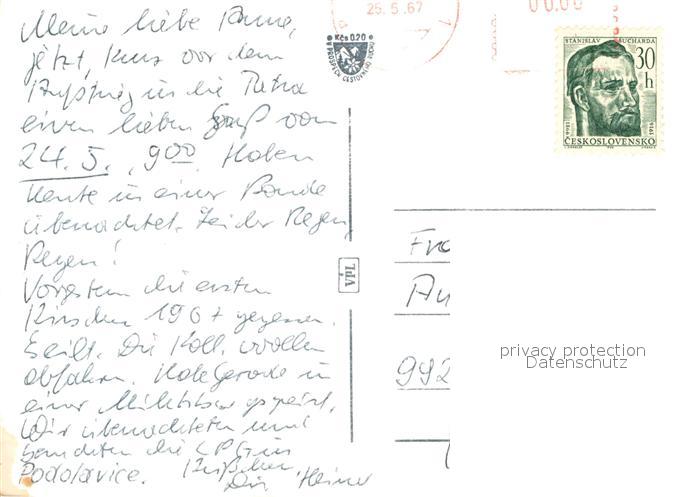 Meine liebe
jetzt, kurz vor dem
Aufstieg in die Tatra
einen lieben Gruß vom
24.5., 9 00. Haben
heute in einer Baude
übernachtet. Leider Regen,
Regen!
Vorgestern die ersten
Kirschen 1967 gegessen.
Seilt. Die Koll. wollen
abfahren. Habe gerade in
einer Milchbar gespeist.
Wir übernachteten und
die LPG in
Podolavice. Küßchen
Dein Heiner
25.5.67
Kčs 0.20
V PROSPĚCH CESTOVNÍHO RUCHU
00.00
STANISLAV SUCHARDA
30 h
1866
1916
ČESKOSLOVENSKO
VPL
Fra
An
992
privacy protection
Datenschutz